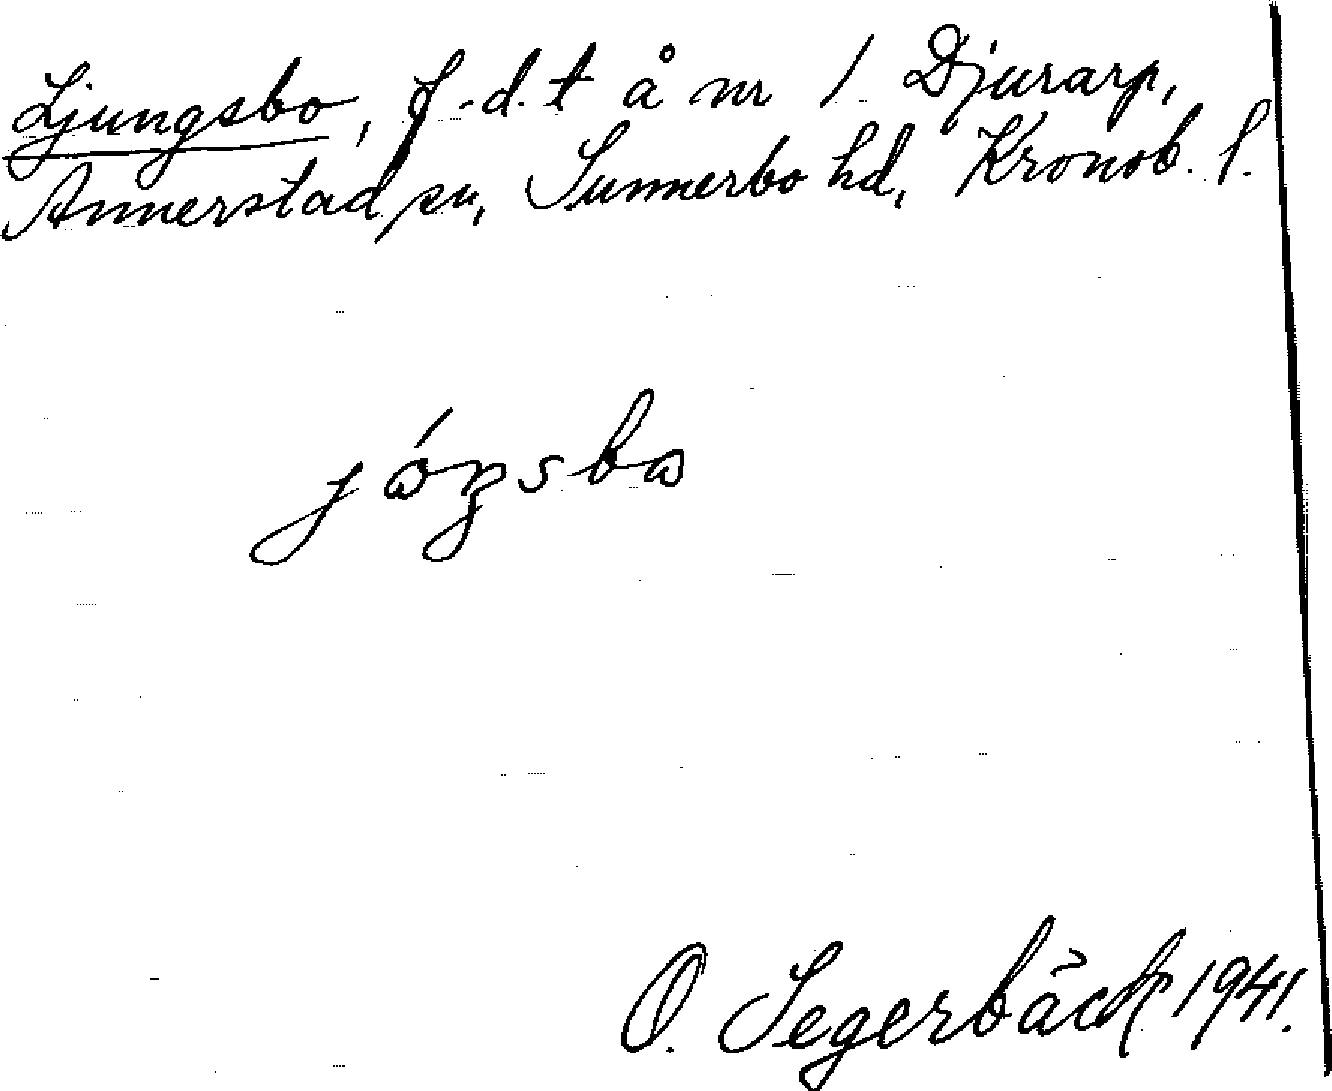 Ljungsbo, f.d.t å nr 1 Djurarp,
Annerstad sn, Sunnerbo hd, Kronob. l.
jó̤ŋsbo
O. Segerbäck 1941.